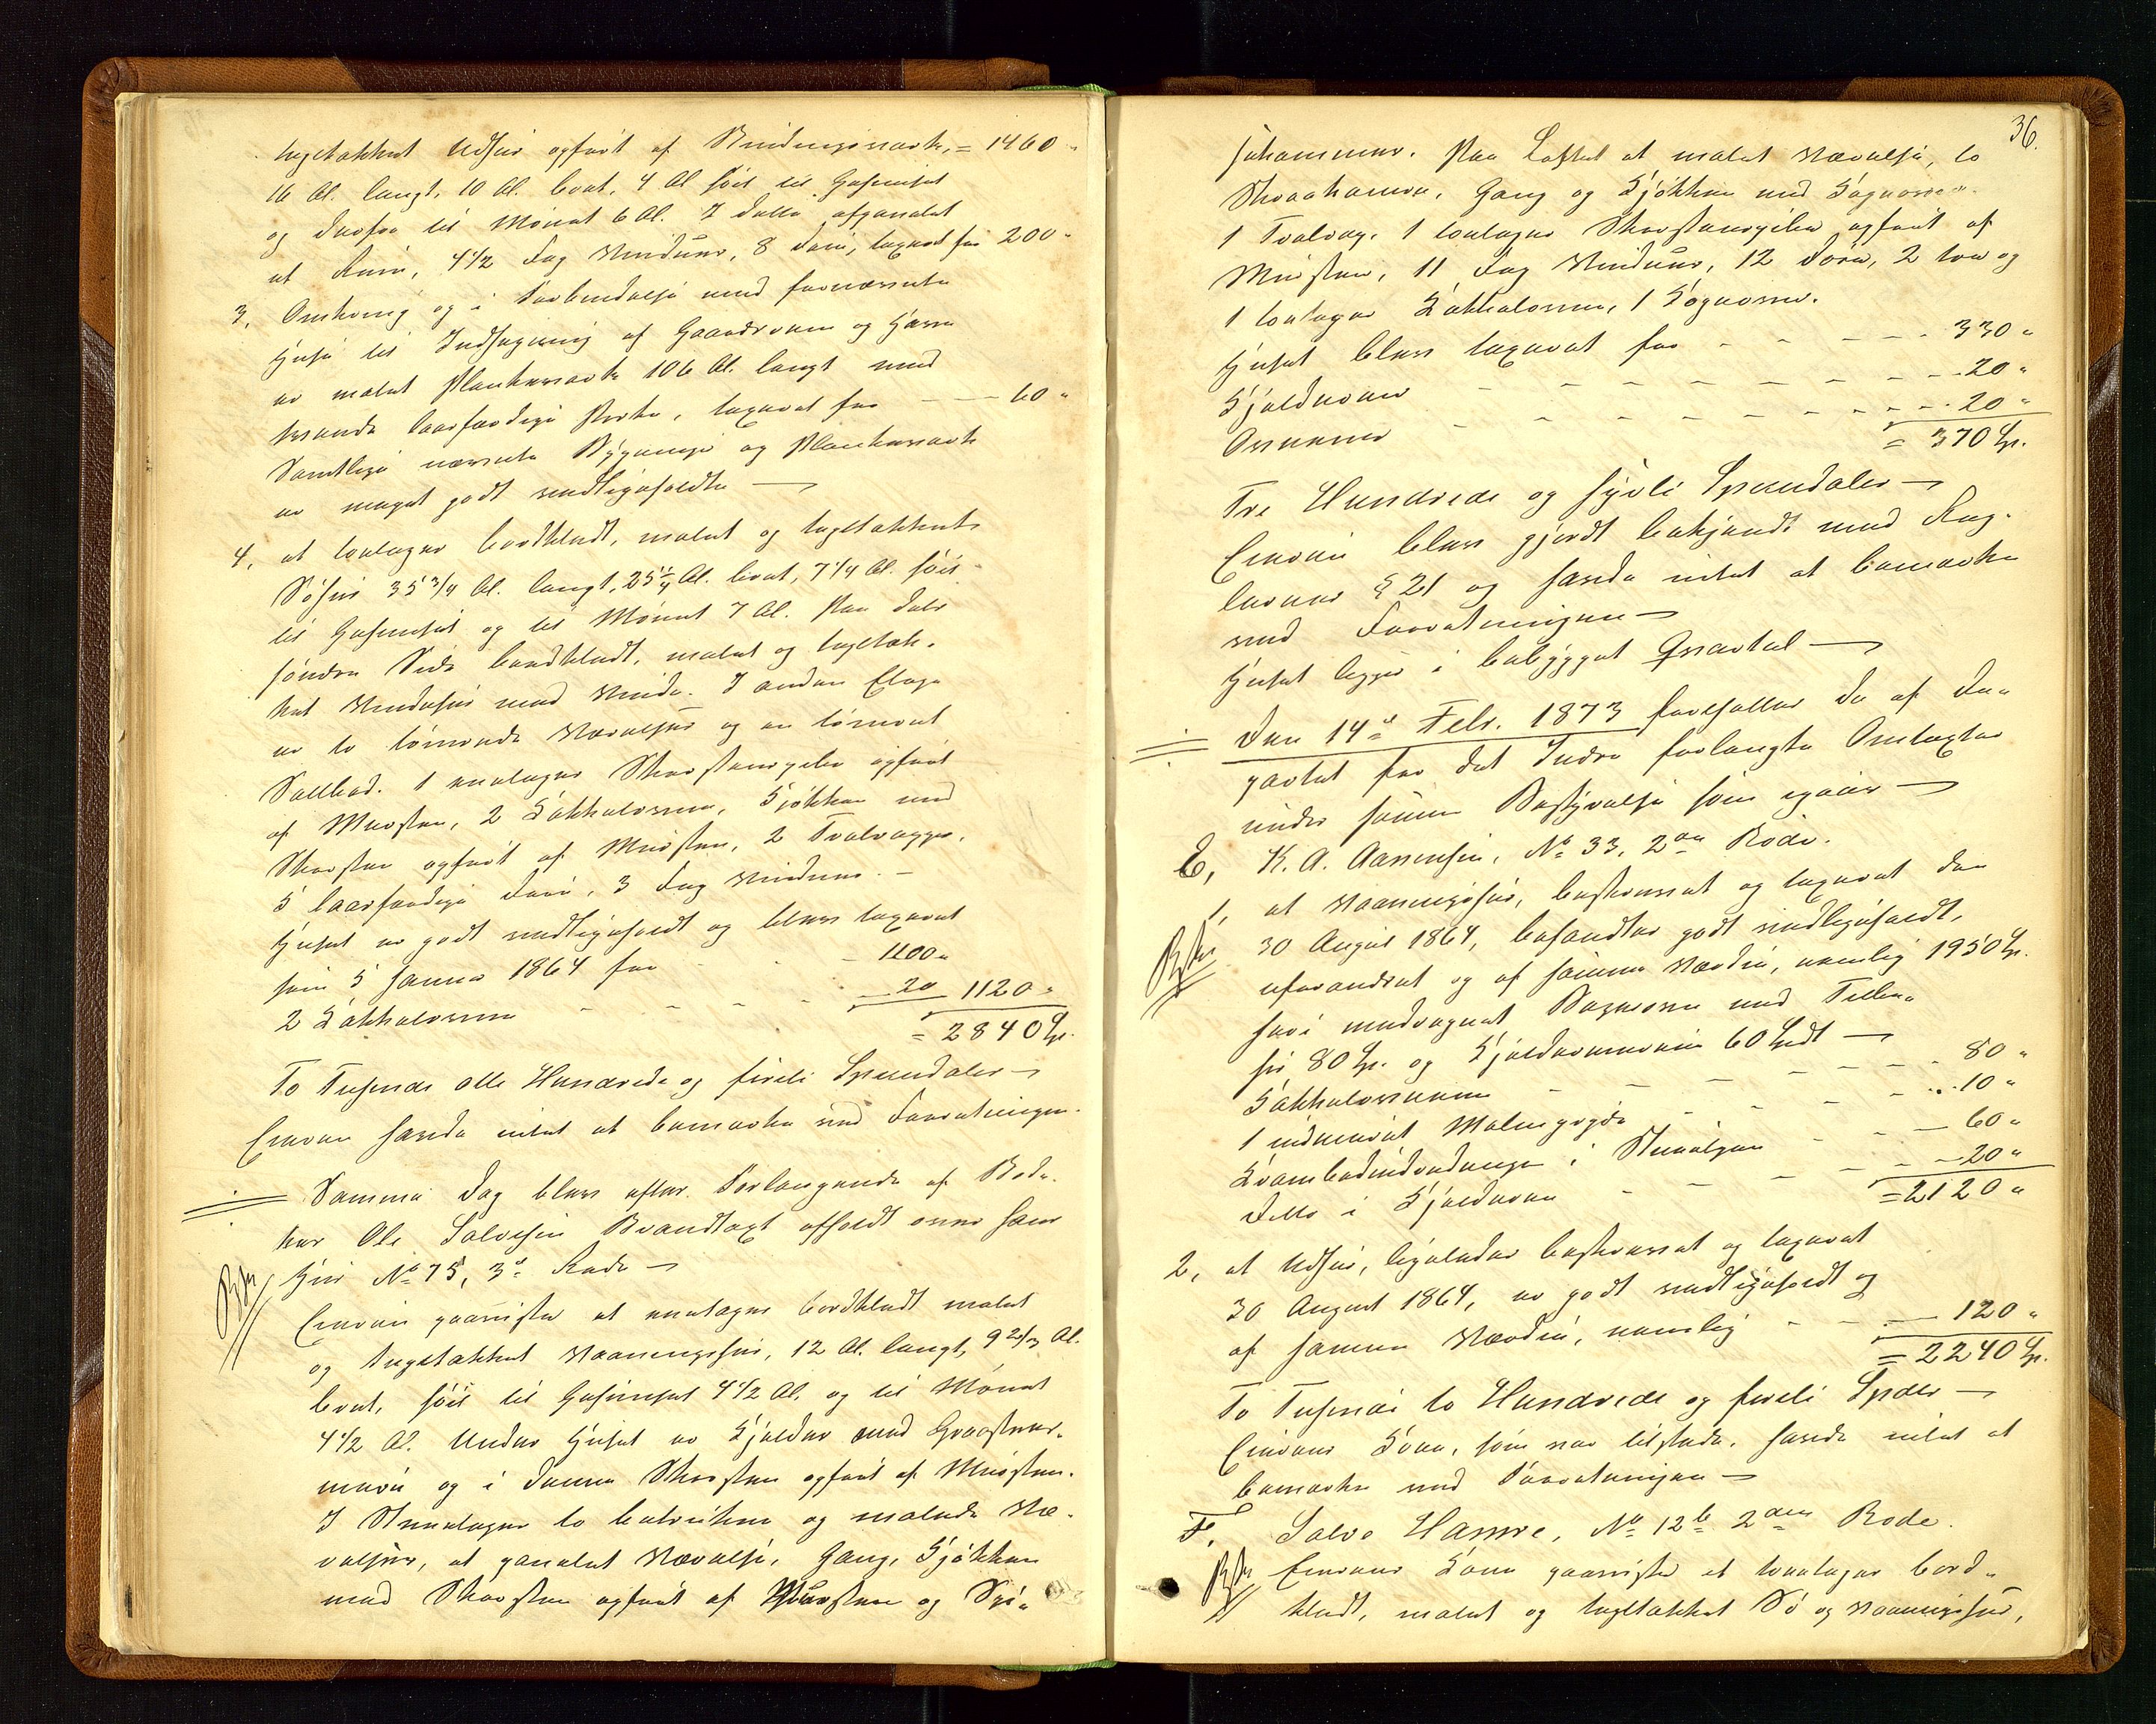 tegltækket Udhus opført af Bindingsværk, = 1460 "
16 Al. langt, 10 Al. bred, 4 Al høit til Gesimset
og derfra til Mønet 6 Al. I dette afpanelet
et Rum, 4 1/2 Fag Vinduer, 8 Døre, taxeret for 200 "
3, Omkring og i Forbindelse med fornævnte
Huse til Indhegning af Gaardsrum og Have
er malet Plankeværk 106 Al. langt med
tvende laasfærdige Porte, taxeret for — — 60 "
Samtlige nævnte Bygninger og Plankeværk
er meget godt vedligeholdte —
4, et toetages bordklædt, malet og tegltækket
Søhus 35 3/4 Al. langt, 25 1/4 Al. bredt, 7 1/4 Al. høit
til Gesimset og til Mønet 7 Al. Paa dets
søndre Side bordklædt, malet og tegltæk-
ket Vindehus med Vinde. I anden Etage
er to tømrede Værelser og en tømret
Saltbod. 1 enetages Skorstenspibe opført
af Mursten, 2 Kakkelovne, Kjøkken med
Skorsten opført af Mursten, 2 Tvalvægge,
5 laasfærdige Døre, 3 Fag Vinduer. —
Huset er godt vedligeholdt og blev taxeret
som i samme 1864 for - - - 1100 "
2 Kakkelovne - - - - 20 1120 "
= 2840 Sp.
To Tusende otte Hundrede og fireti Speciedaler —
Eieren havde intet at bemærke ved Forretningen.
Samme Dag blev efter Forlangende af Bød-
ker Ole Salvesen Brandtaxt afholdt over hans
Hus No 75, 3de Rode —
Eieren paaviste et enetages bordklædt malet
og tegltækket Vaaningshus, 12 Al. langt, 9 2/3 Al.
bredt, høit til Gesimset 4 1/2 Al. og til Mønet
4 1/2 Al. Under Huset er Kjelder med Graastens-
mure og i denne Skorsten opført af Mursten.
I Stueetagen to betrukne og malede Væ-
relser, et panelet Værelse, Gang, Kjøkken
med Skorsten opført af Mursten og Spi-
36.
sekammer. Paa Loftet et malet Værelse, to
Skraakamre, Gang og Kjøkken med Kogeovn.
1 Tvalvæg. 1 toetages Skorstenspibe opført af
Mursten, 11 Fag Vinduer, 12 Døre, 2 tre og
1 toetages Kakkelovne, 1 Kogeovn.
Huset blev taxeret for - - - - 330 "
Kjelderen - - - - - - - 20 "
Ovnene - - - - - - - 20 "
= 370 Sp.
Tre Hundrede og sytti Speciedaler —
Eieren blev gjordt bekjendt med Reg-
lernes § 21 og havde intet at bemærke
ved Forretningen —
Huset ligger i bebygget Qvartal —
Den 14de Febr. 1873 foretoges de af De-
partet for det Indre forlangte Omtaxter
under samme Bestyrelse som igaar —
E, K. A. Aanensen, No 33, 2den Rode.
1, et Vaaningshus, beskrevet og taxeret den
30 August 1864, befandtes godt vedligeholdt,
uforandret og af samme Værdi, nemlig 1950 Sp.
heri medregnet Bageovn med Tilbe-
hør 80 Sp. og Kjeldermurene 60 Spdl —
Kakkelovnene - - - - - - 80 "
1 indmuret Malmgryde - - - - 10 "
Krambodindredninger i Stueetagen - - - 60 "
Ditto i Kjelderen - - - - - 20 "
= 2120 "
2, et Udhus, ligeledes beskrevet og taxeret
30 August 1864, er godt vedligeholdt og
af samme Værdi, nemlig - - — 120 "
= 2240 Sp.
To Tusende to Hundrede og firetí Spdlr —
Eierens Kone, som var tilstede, havde intet at
bemærke ved Forretningen —
F, Salve Hamre, No 12b 2den Rode.
Eierens Kone paaviste et toetages bord-
klædt, malet og tegltækket Sø og Vaaningshus,